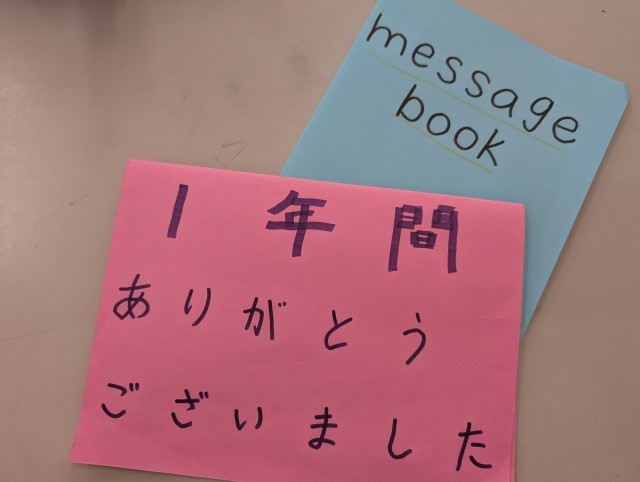 message
book
1年間
ありがとう
ございました